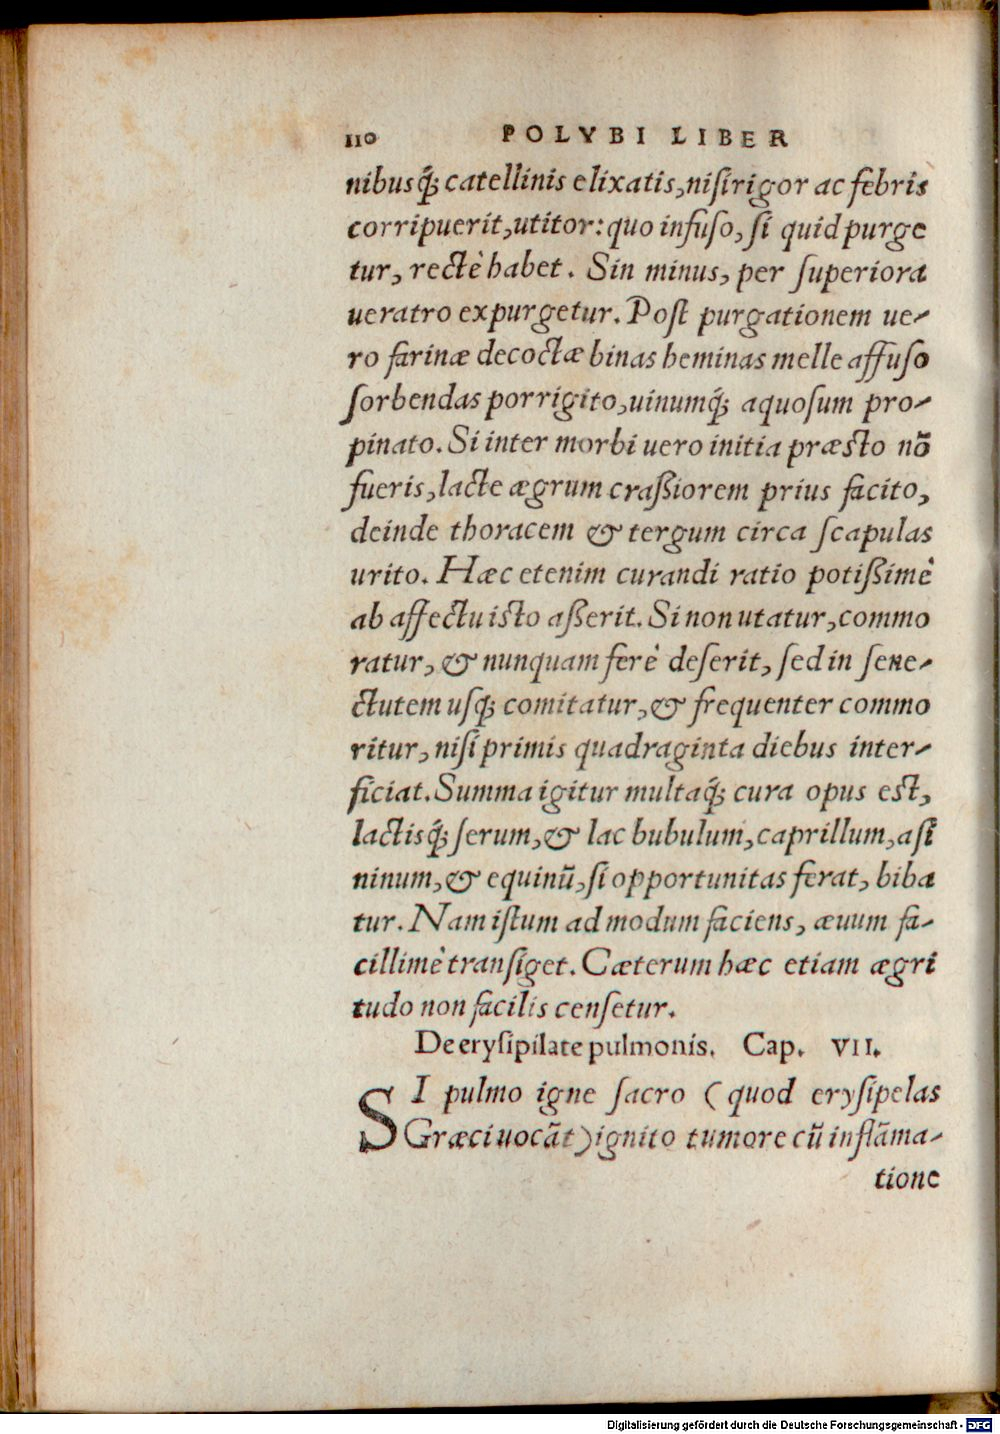 110 POLYBI LIBER
nibusq́; catellinis elixatis, nisi rigor ac febris
corripuerit, utitor: quo infuso, si quid purge
tur, rectè habet. Sin minus, per superiora
ueratro expurgetur. Post purgationem ue-
ro farinæ decoctæ binas heminas melle affuso
sorbendas porrigito, uinumq́; aquosum pro-
pinato. Si inter morbi uero initia præsto nō
fueris, lacte ægrum craßiorem prius facito,
deinde thoracem & tergum circa scapulas
urito. Hæc etenim curandi ratio potißimè
ab affectu isto aßerit. Si non utatur, commo
ratur, & nunquam ferè deserit, sed in sene-
ctutem usq; comitatur, & frequenter commo
ritur, nisi primis quadraginta diebus inter-
ficiat. Summa igitur multaq́; cura opus est,
lactisq́; serum, & lac bubulum, caprillum, asi
ninum, & equinū, si opportunitas ferat, biba
tur. Nam istum ad modum faciens, æuum fa-
cillimè transiget. Cæterum hæc etiam ægri
tudo non facilis censetur.
De erysipilate pulmonis. Cap. VII.
SI pulmo igne sacro (quod erysipelas
Græci uocāt) ignito tumore cū inflāma-
tione
Digitalisierung gefördert durch die Deutsche Forschungsgemeinschaft - DFG